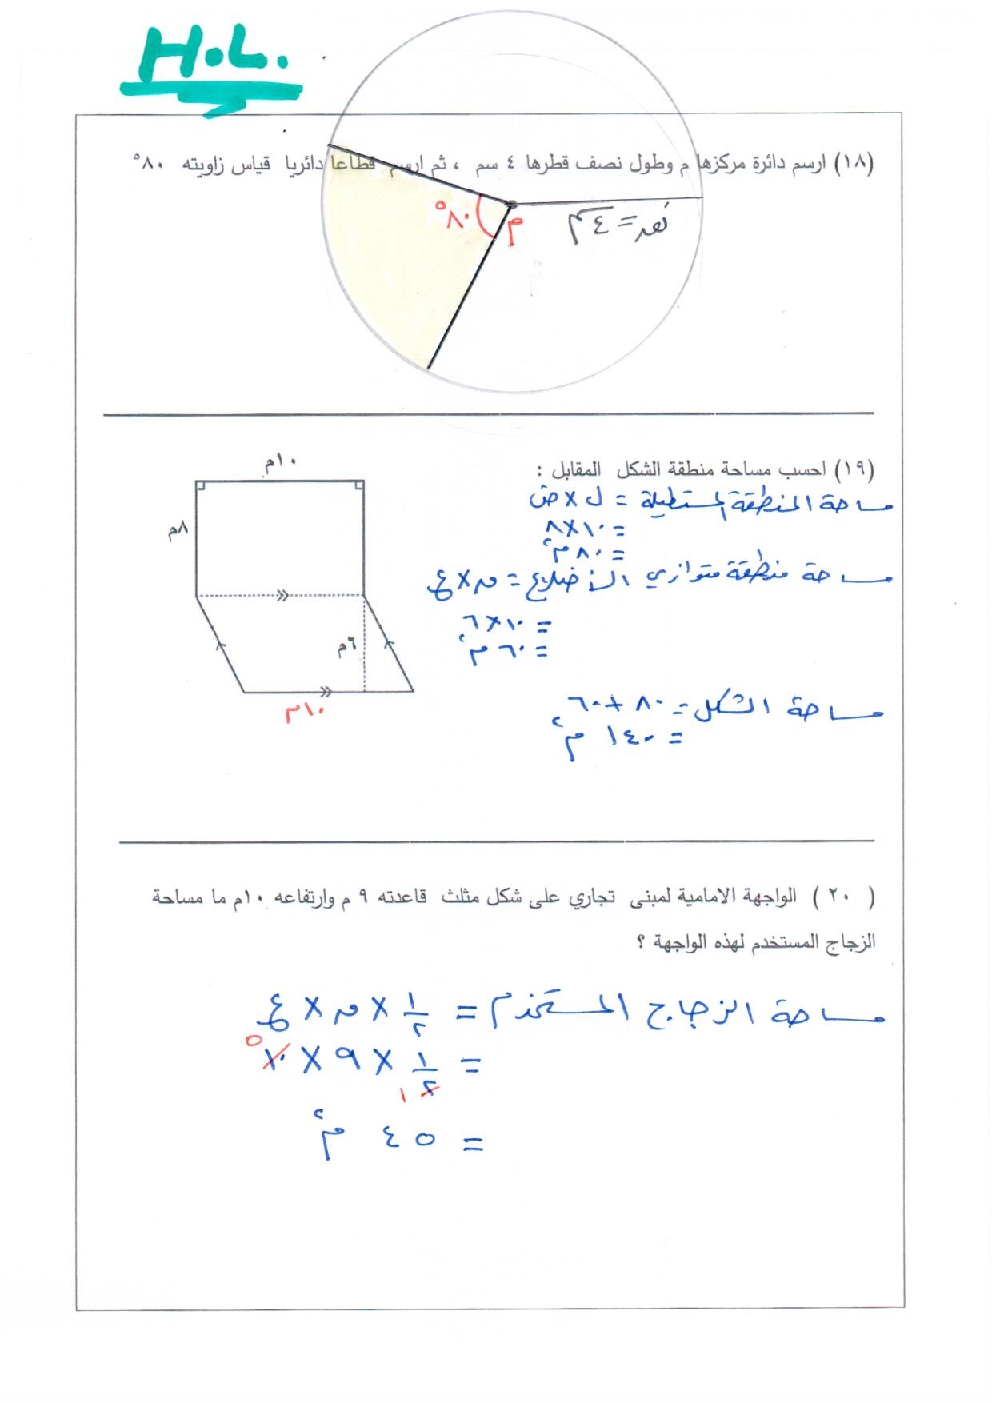 H.L.
(١٨) ارسم دائرة مركزها م وطول نصف قطرها ٤ سم ، ثم ارسم قطاعا دائريا قياس زاويته ٨٠°
٨٠°
م
نق = ٤ سم
(١٩) احسب مساحة منطقة الشكل المقابل :
١٠م
٨م
٦م
١٠م
مساحة المنطقة المستطيلة = ل × ض
= ١٠ × ٨
= ٨٠ م²
مساحة منطقة متوازي الأضلاع = ق × ع
= ١٠ × ٦
= ٦٠ م²
مساحة الشكل = ٨٠ + ٦٠
= ١٤٠ م²
( ٢٠ ) الواجهة الامامية لمبنى تجاري على شكل مثلث قاعدته ٩ م وارتفاعه ١٠م ما مساحة
الزجاج المستخدم لهذه الواجهة ؟
مساحة الزجاج المستخدم = ١/٢ × ق × ع
= ١/٢ × ٩ × ١٠
٥
١
= ٤٥ م²